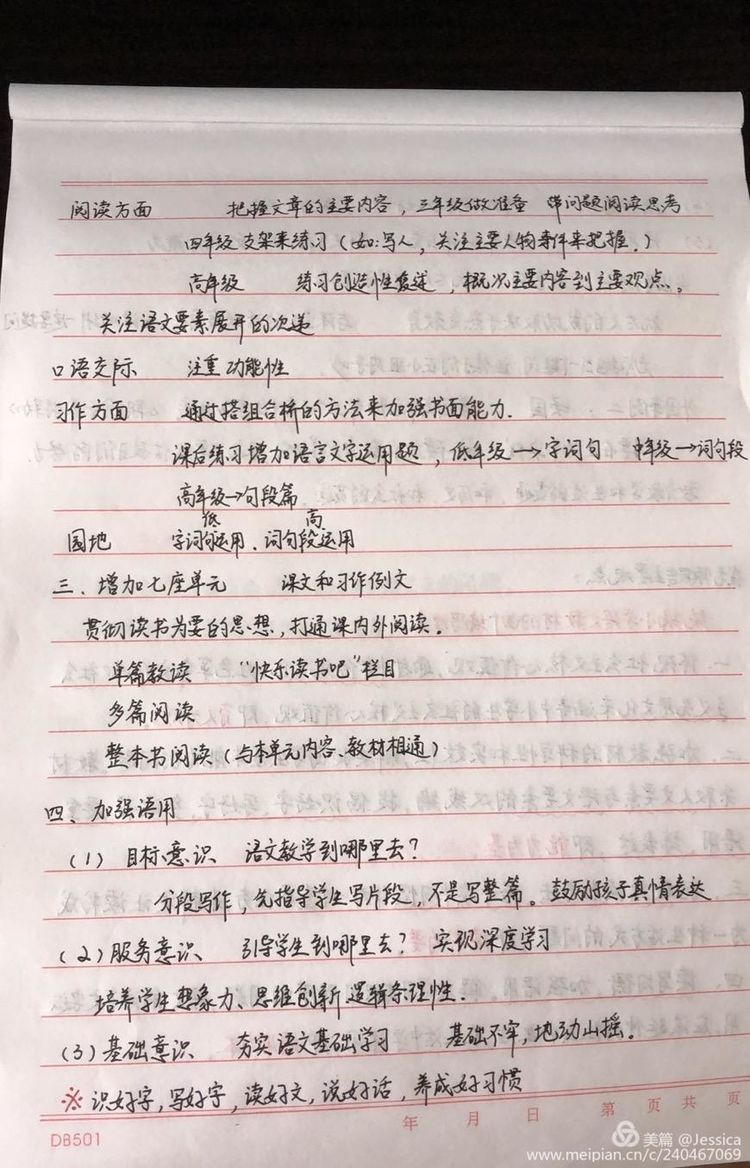 阅读方面 把握文章的主要内容，三年级做准备 带问题阅读思考
四年级 支架来练习（如:写人，关注主要人物事件来把握.）
高年级 练习创造性复述，概况主要内容到主要观点。
关注语文要素展开的次递
口语交际 注重功能性
习作方面 通过搭组合桥的方法来加强书面能力.
课后练习增加语言文字运用题，低年级→字词句 中年级→词句段
高年级→句段篇
低 高
园地 字词句运用、词句段运用
三、增加七座单元 课文和习作例文
贯彻读书为要的思想，打通课内外阅读。
单篇教读 “快乐读书吧”栏目
多篇阅读
整本书阅读（与本单元内容、教材相通）
四、加强语用
（1）目标意识 语文教学到哪里去？
分段写作，先指导学生写片段，不是写整篇。鼓励孩子真情表达
（2）服务意识 引导学生到哪里去？ 实现深度学习
培养学生想象力、思维创新 逻辑条理性.
（3）基础意识 夯实语文基础学习 基础不牢，地动山摇。
※ 识好字，写好字，读好文，说好话，养成好习惯
年 月 日 第 页 共 页
DB501
美篇 @Jessica
www.meipian.cn/c/240467069